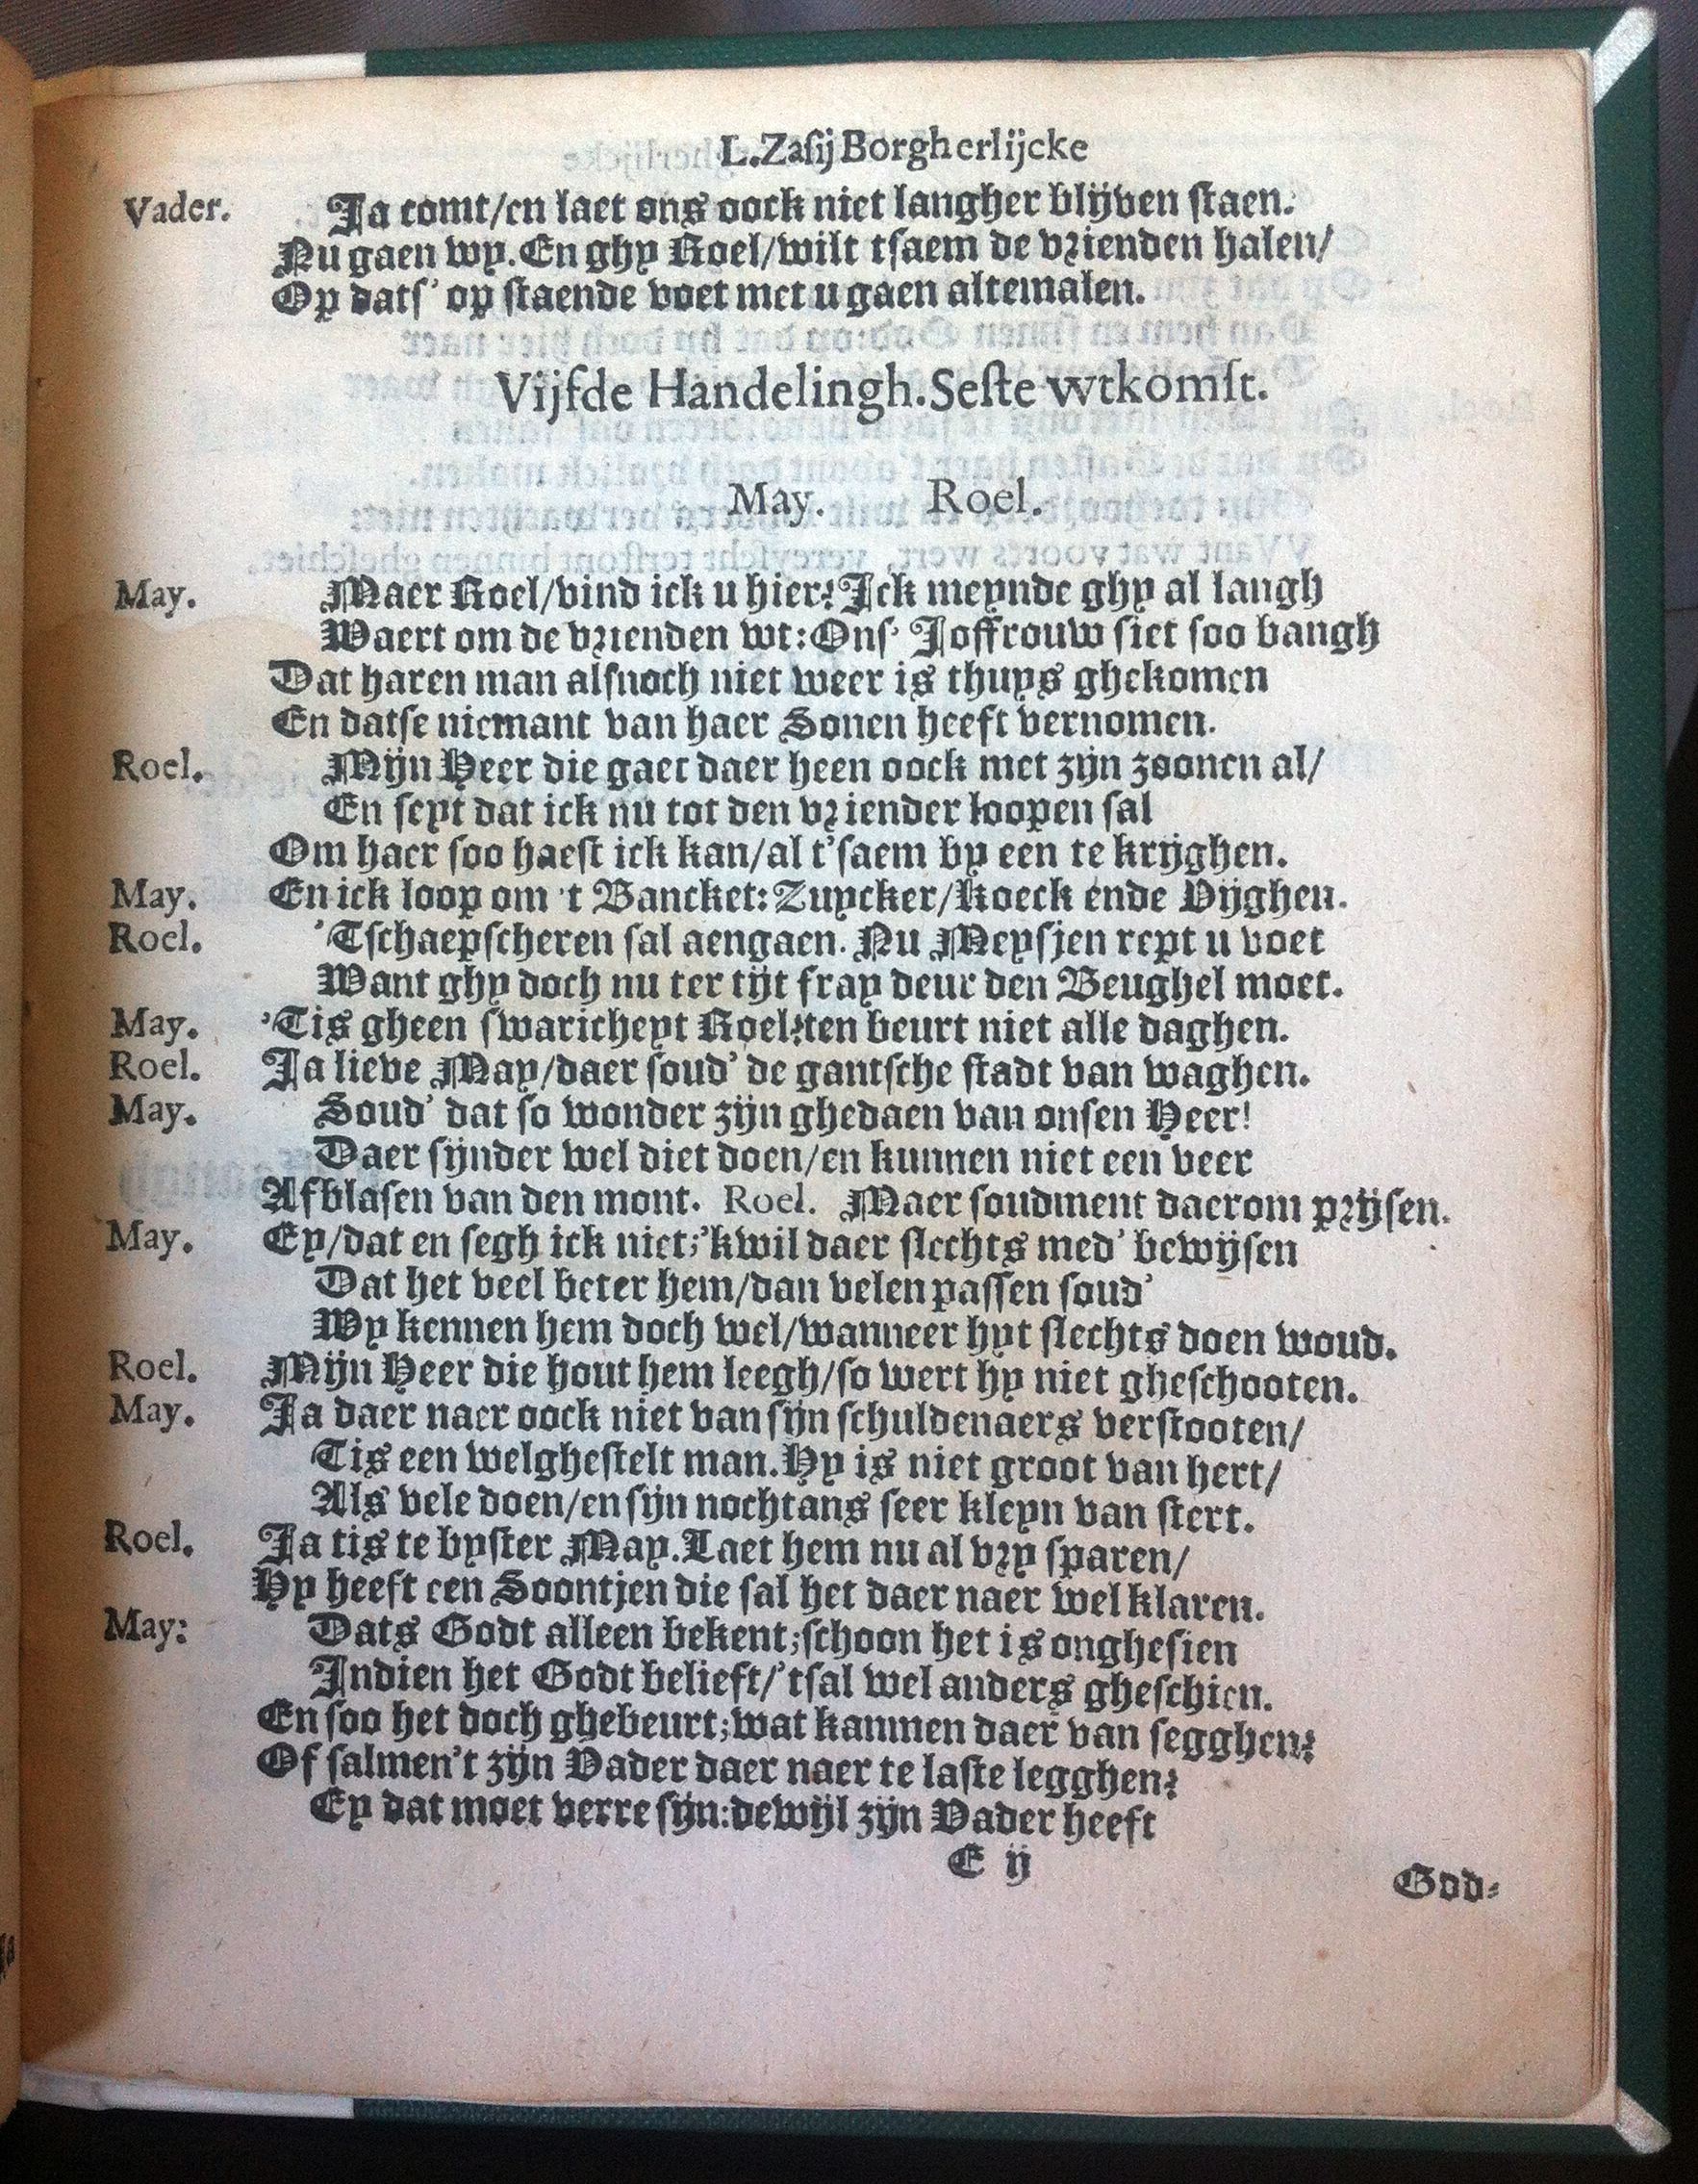 L. Zasij Borgherlijcke
Vader. Ja comt/en laet ons oock niet langher blijven staen.
Nu gaen wy. En ghy Roel/wilt tsaem de vrienden halen/
Op dats' op staende voet met u gaen altemalen.
Vijfde Handelingh. Seste wtkomst.
May. Roel.
May. Maer Roel/vind ick u hier? Ick meynde ghy al langh
Waert om de vrienden wt: Ons' Joffrouw siet soo bangh
Dat haren man alsnoch niet weer is thuys ghekomen
En datse niemant van haer Sonen heeft vernomen.
Roel. Mijn Heer die gaet daer heen oock met zijn zoonen al/
En seyt dat ick nu tot den vriender loopen sal
Om haer soo haest ick kan/al t'saem by een te krijghen.
May. En ick loop om 't Bancket: Zuycker/Koeck ende Vijghen.
Roel. 'Tschaepscheren sal aengaen. Nu Meysjen rept u voet
Want ghy doch nu ter tijt fray deur den Beughel moet.
May. 'Tis gheen swaricheyt Roel; ten beurt niet alle daghen.
Roel. Ja lieve May/daer soud' de gantsche stadt van waghen.
May. Soud' dat so wonder zijn ghedaen van onsen Heer!
Daer sijnder wel diet doen/en kunnen niet een veer
Afblasen van den mont. Roel. Maer soudment daerom prijsen.
May. Ey/dat en segh ick niet; 'kwil daer slechts med' bewijsen
Dat het veel beter hem/dan velen passen soud'
Wy kennen hem doch wel/wanneer hyt slechts doen woud.
Roel. Mijn Heer die hout hem leegh/so wert hy niet gheschooten.
May. Ja daer naer oock niet van sijn schuldenaers verstooten/
Tis een welghestelt man. Hy is niet groot van hert/
Als vele doen/en sijn nochtans seer kleyn van stert.
Roel. Ja tis te byster May. Laet hem nu al vry sparen/
Hy heeft een Soontjen die sal het daer naer wel klaren.
May: Dats Godt alleen bekent; schoon het is onghesien
Indien het Godt belieft/'tsal wel anders gheschien.
En soo het doch ghebeurt; wat kanmen daer van segghen?
Of salmen't zijn Vader daer naer te laste legghen?
Ey dat moet verre sijn: dewijl zijn Vader heeft
E ij
God-